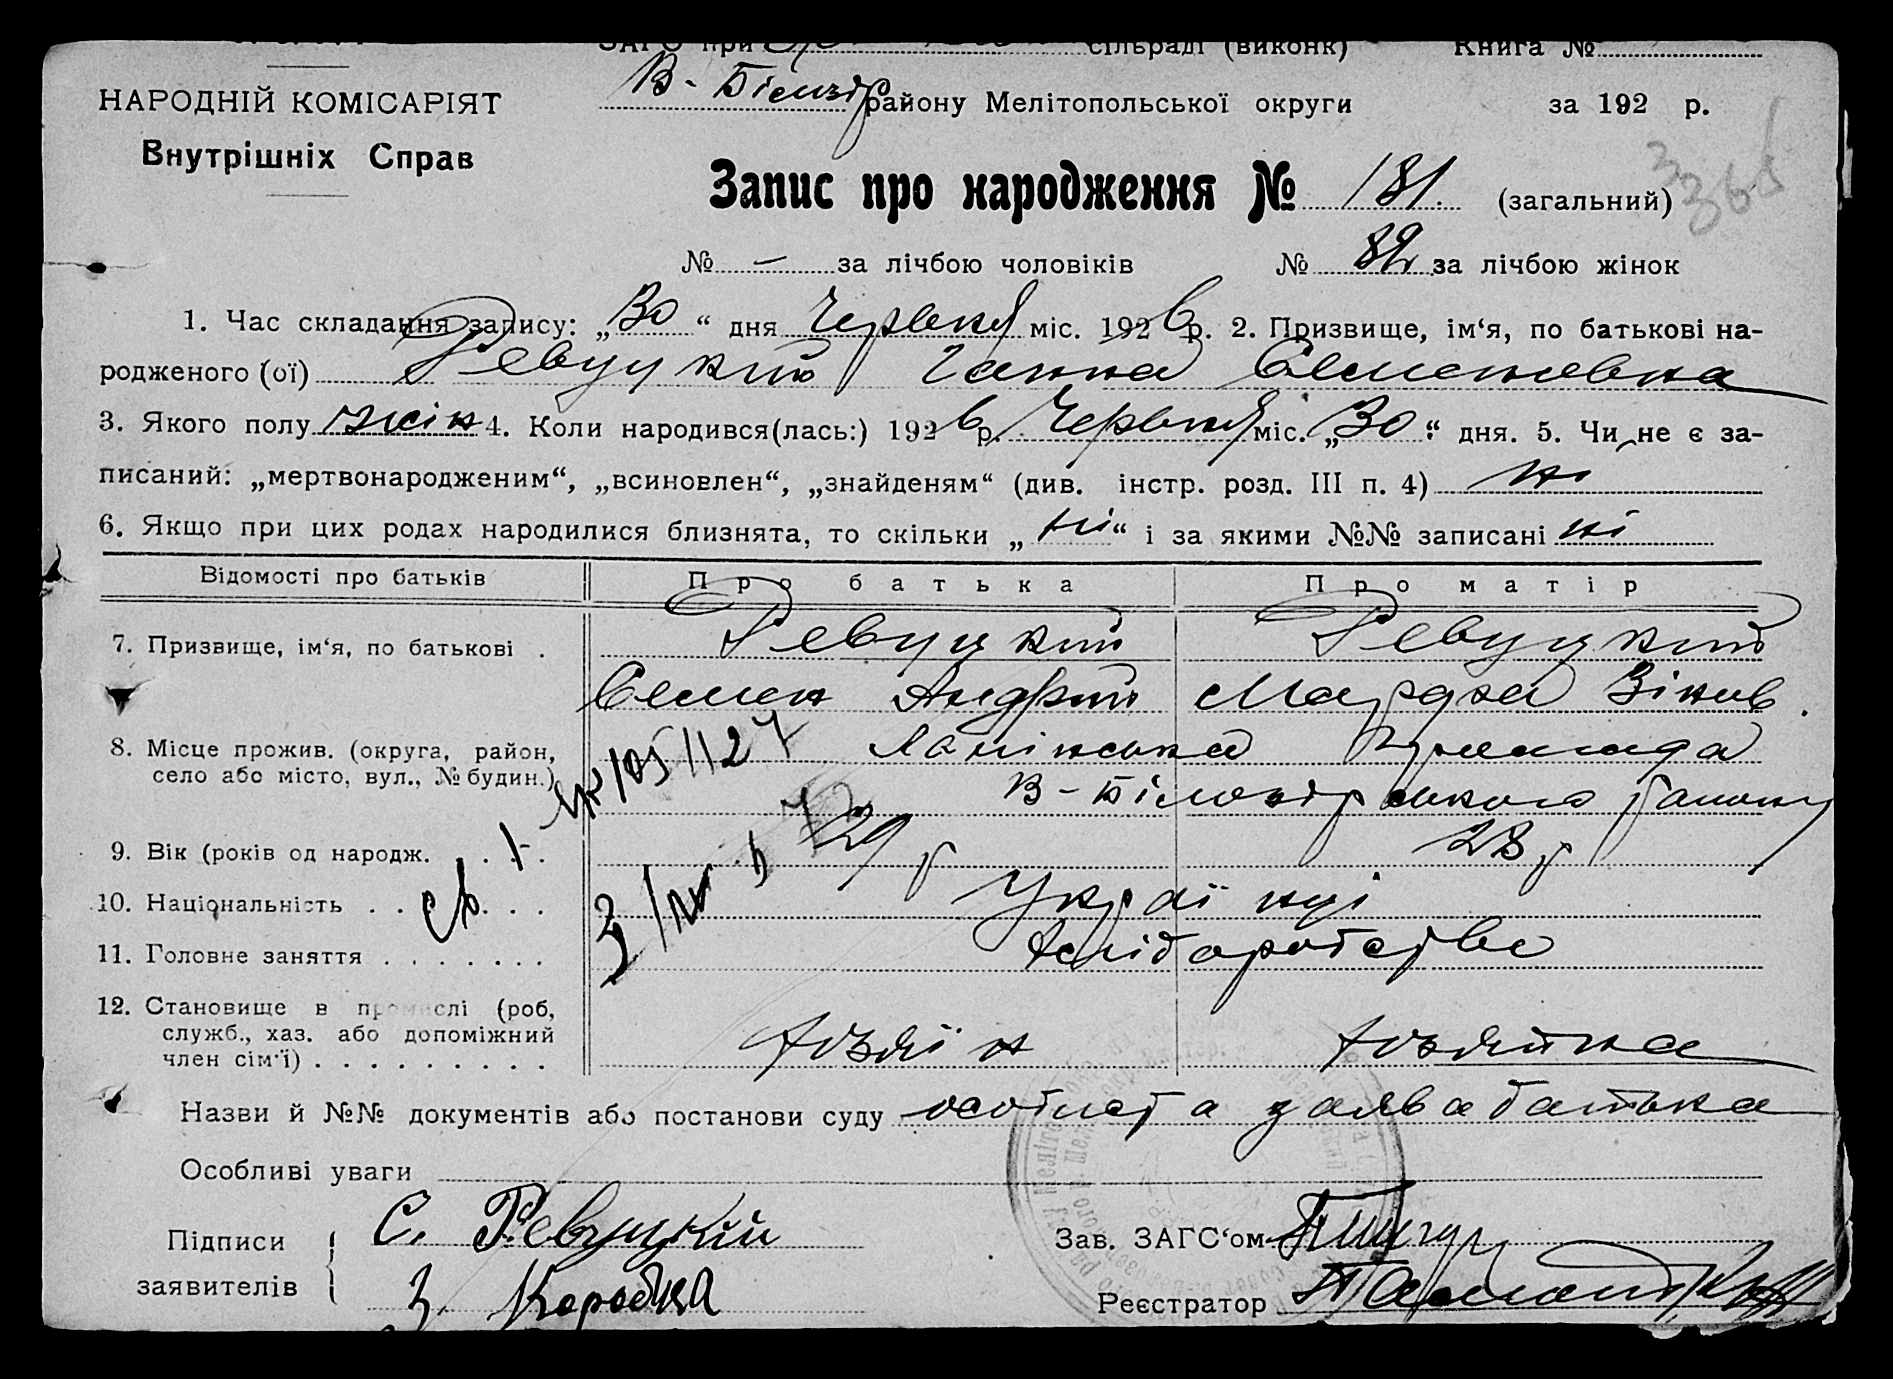 ЗАГС при сільраді (виконк) Книга №
НАРОДНІЙ КОМІСАРІЯТ
Внутрішніх Справ
В-Білозір району Мелітопольської округи за 192 р.
3365
Запис про народження № 181. (загальний)
№ – за лічбою чоловіків № 82 за лічбою жінок
1. Час складання запису: „30“ дня Червня міс. 1926 р. 2. Призвище, ім‘я, по батькові на-
родженого (ої) Ревуцкий Ганна Семеновна
3. Якого полу жін 4. Коли народився(лась:) 1926 р. Червня міс. „30“ дня. 5. Чи не є за-
писаний: „мертвонародженим“, „всиновлен“, „знайденям“ (див. інстр. розд. III п. 4) ні
6. Якщо при цих родах народилися близнята, то скільки „ні“ і за якими №№ записані ні
Відомості про батьків Про батька Про матір
7. Призвище, ім‘я, по батькові . Ревуцкий Ревуцкий
Семен Андрій Зінов.
8. Місце прожив. (округа, район, громада
село або місто, вул., № будин.) В-Білозірського району
9. Вік (років од народж. . . . . 29 р 28 р
10. Національність . . . . . . Українці
11. Головне заняття . . . . . . . Хліборобство
12. Становище в промислі (роб, служб., хаз. або допоміжний член сім‘ї) . . . . . . . . . . Хозяїн Хозяйка
Назви й №№ документів або постанови суду особиста заява батька
Особливі уваги
Підписи заявителів { С. Ревуцкій Зав. ЗАГС‘ом
З. Коробка Реєстратор